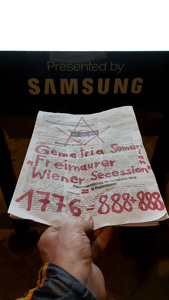 Presented by
SAMSUNG
Gematria Sumer
"Freimaurer
Wiener Secession"
1776-888+888